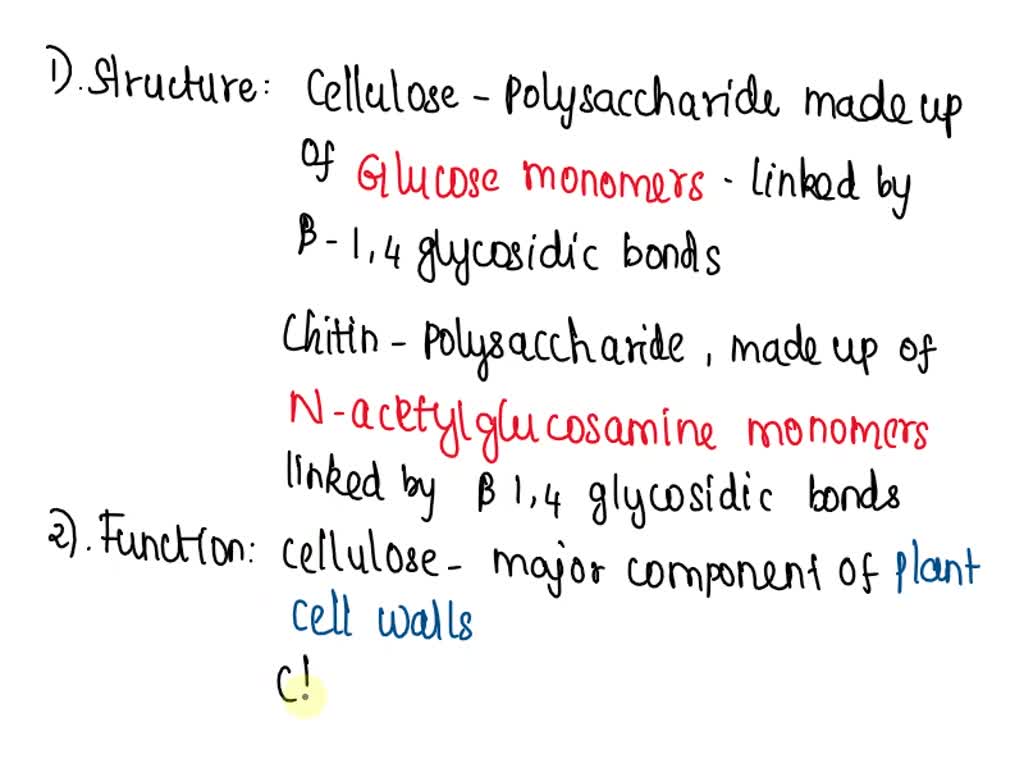 1). Structure: Cellulose - Polysaccharide made up
of Glucose monomers - linked by
β-1,4 glycosidic bonds
Chitin - Polysaccharide, made up of
N-acetylglucosamine monomers
linked by β 1,4 glycosidic bonds
2). Function: cellulose - major component of plant
cell walls